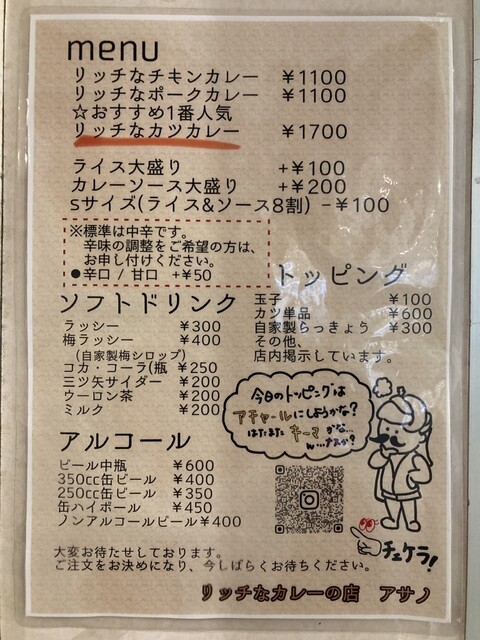 menu
リッチなチキンカレー ¥1100
リッチなポークカレー ¥1100
☆おすすめ1番人気
リッチなカツカレー ¥1700
ライス大盛り +¥100
カレーソース大盛り +¥200
sサイズ(ライス&ソース8割) −¥100
※標準は中辛です。
辛味の調整をご希望の方は、
お申し付けください。
●辛口 / 甘口 +¥50
トッピング
玉子 ¥100
カツ単品 ¥600
自家製らっきょう ¥300
その他、
店内掲示しています。
ソフトドリンク
ラッシー ¥300
梅ラッシー ¥400
(自家製梅シロップ)
コカ・コーラ(瓶 ¥250
三ツ矢サイダー ¥200
ウーロン茶 ¥200
ミルク ¥200
今日のトッピングは
アチャールにしようかな?
はたまた キーマ かな...
ん...
アルコール
ビール中瓶 ¥600
350cc缶ビール ¥400
250cc缶ビール ¥350
缶ハイボール ¥450
ノンアルコールビール¥400
チェケラ!
大変お待たせしております。
ご注文をお決めになり、今しばらくお待ちください。
リッチなカレーの店 アサノ